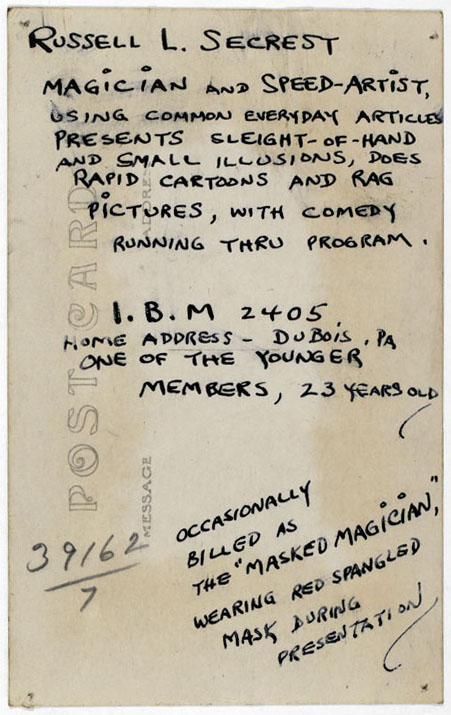 RUSSELL L. SECREST
MAGICIAN AND SPEED-ARTIST,
USING COMMON EVERYDAY ARTICLES
PRESENTS SLEIGHT-OF-HAND
AND SMALL ILLUSIONS, DOES
RAPID CARTOONS AND RAG
PICTURES, WITH COMEDY
RUNNING THRU PROGRAM.
I.B.M 2405
HOME ADDRESS - DUBOIS, PA
ONE OF THE YOUNGER
MEMBERS, 23 YEARS OLD
OCCASIONALLY
BILLED AS
THE "MASKED MAGICIAN",
WEARING RED SPANGLED
MASK DURING
PRESENTATION
39162
7
POST CARD
ADDRESS
MESSAGE